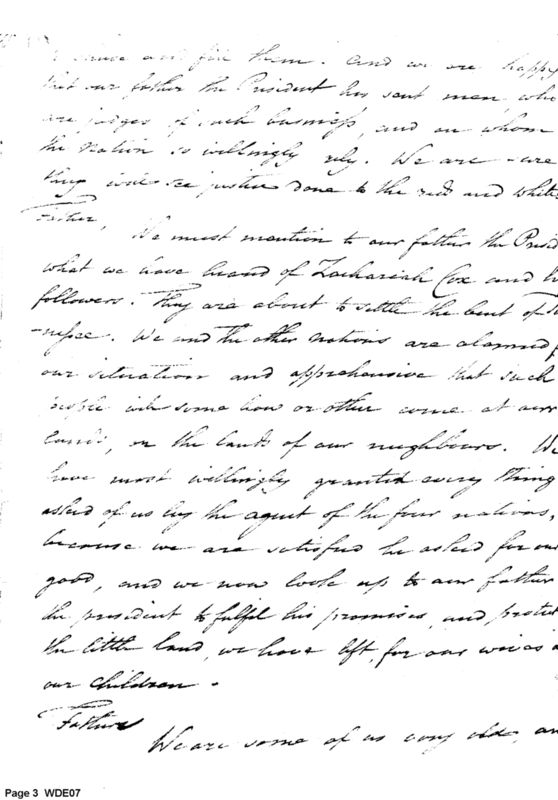 them. And we are happy
that our father the President has sent men, who
are judges of such business, and on whom
the Nation so willingly rely. We are
they will see justice done to the red and white
Father,
We must mention to our father the Presid
what we have heard of Zachariah Cox and h
followers. They are about to settle the bent of T
-nessee. We and the other nations are alarmed f
our situation and apprehensive that such
people will some how or other come at our
lands, or the lands of our neighbours. We
have most willingly granted every thing
asked of us by the agent of the four nations,
because we are satisfied he asked for our
good, and we now look up to our father
the president to fulfil his promises, and protect
the little land, we have left, for our wives a
our children.
Father
We are some of us very old, an
Page 3 WDE07